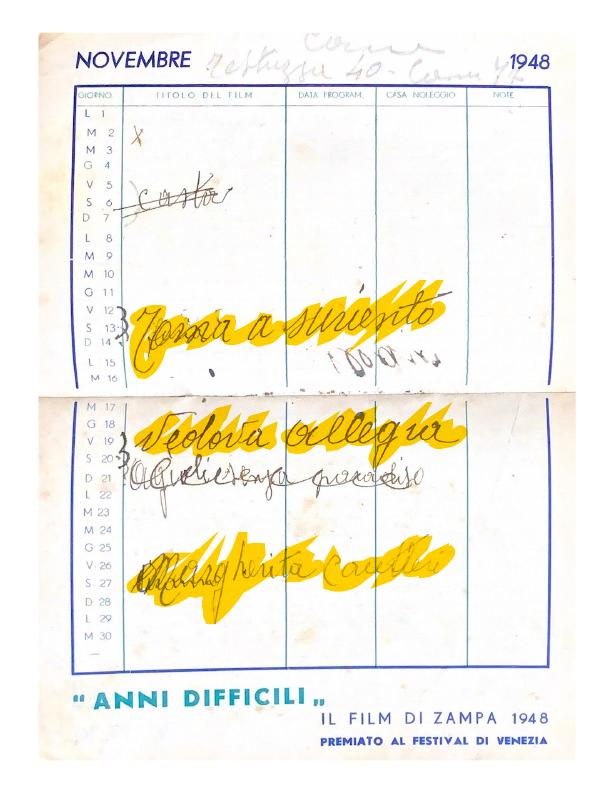 NOVEMBRE 1948
GIORNO TITOLO DEL FILM DATA PROGRAM. CASA NOLEGGIO NOTE
L 1
M 2 X
M 3
G 4
V 5
S 6
D 7
L 8
M 9
M 10
G 11
V 12
S 13 Torna a suriento
D 14
L 15
M 16
M 17
G 18
V 19 Vedova allegra
S 20
D 21 paradiso
L 22
M 23
M 24
G 25
V 26
S 27 Margherita
D 28
L 29
M 30
—
"ANNI DIFFICILI"
IL FILM DI ZAMPA 1948
PREMIATO AL FESTIVAL DI VENEZIA